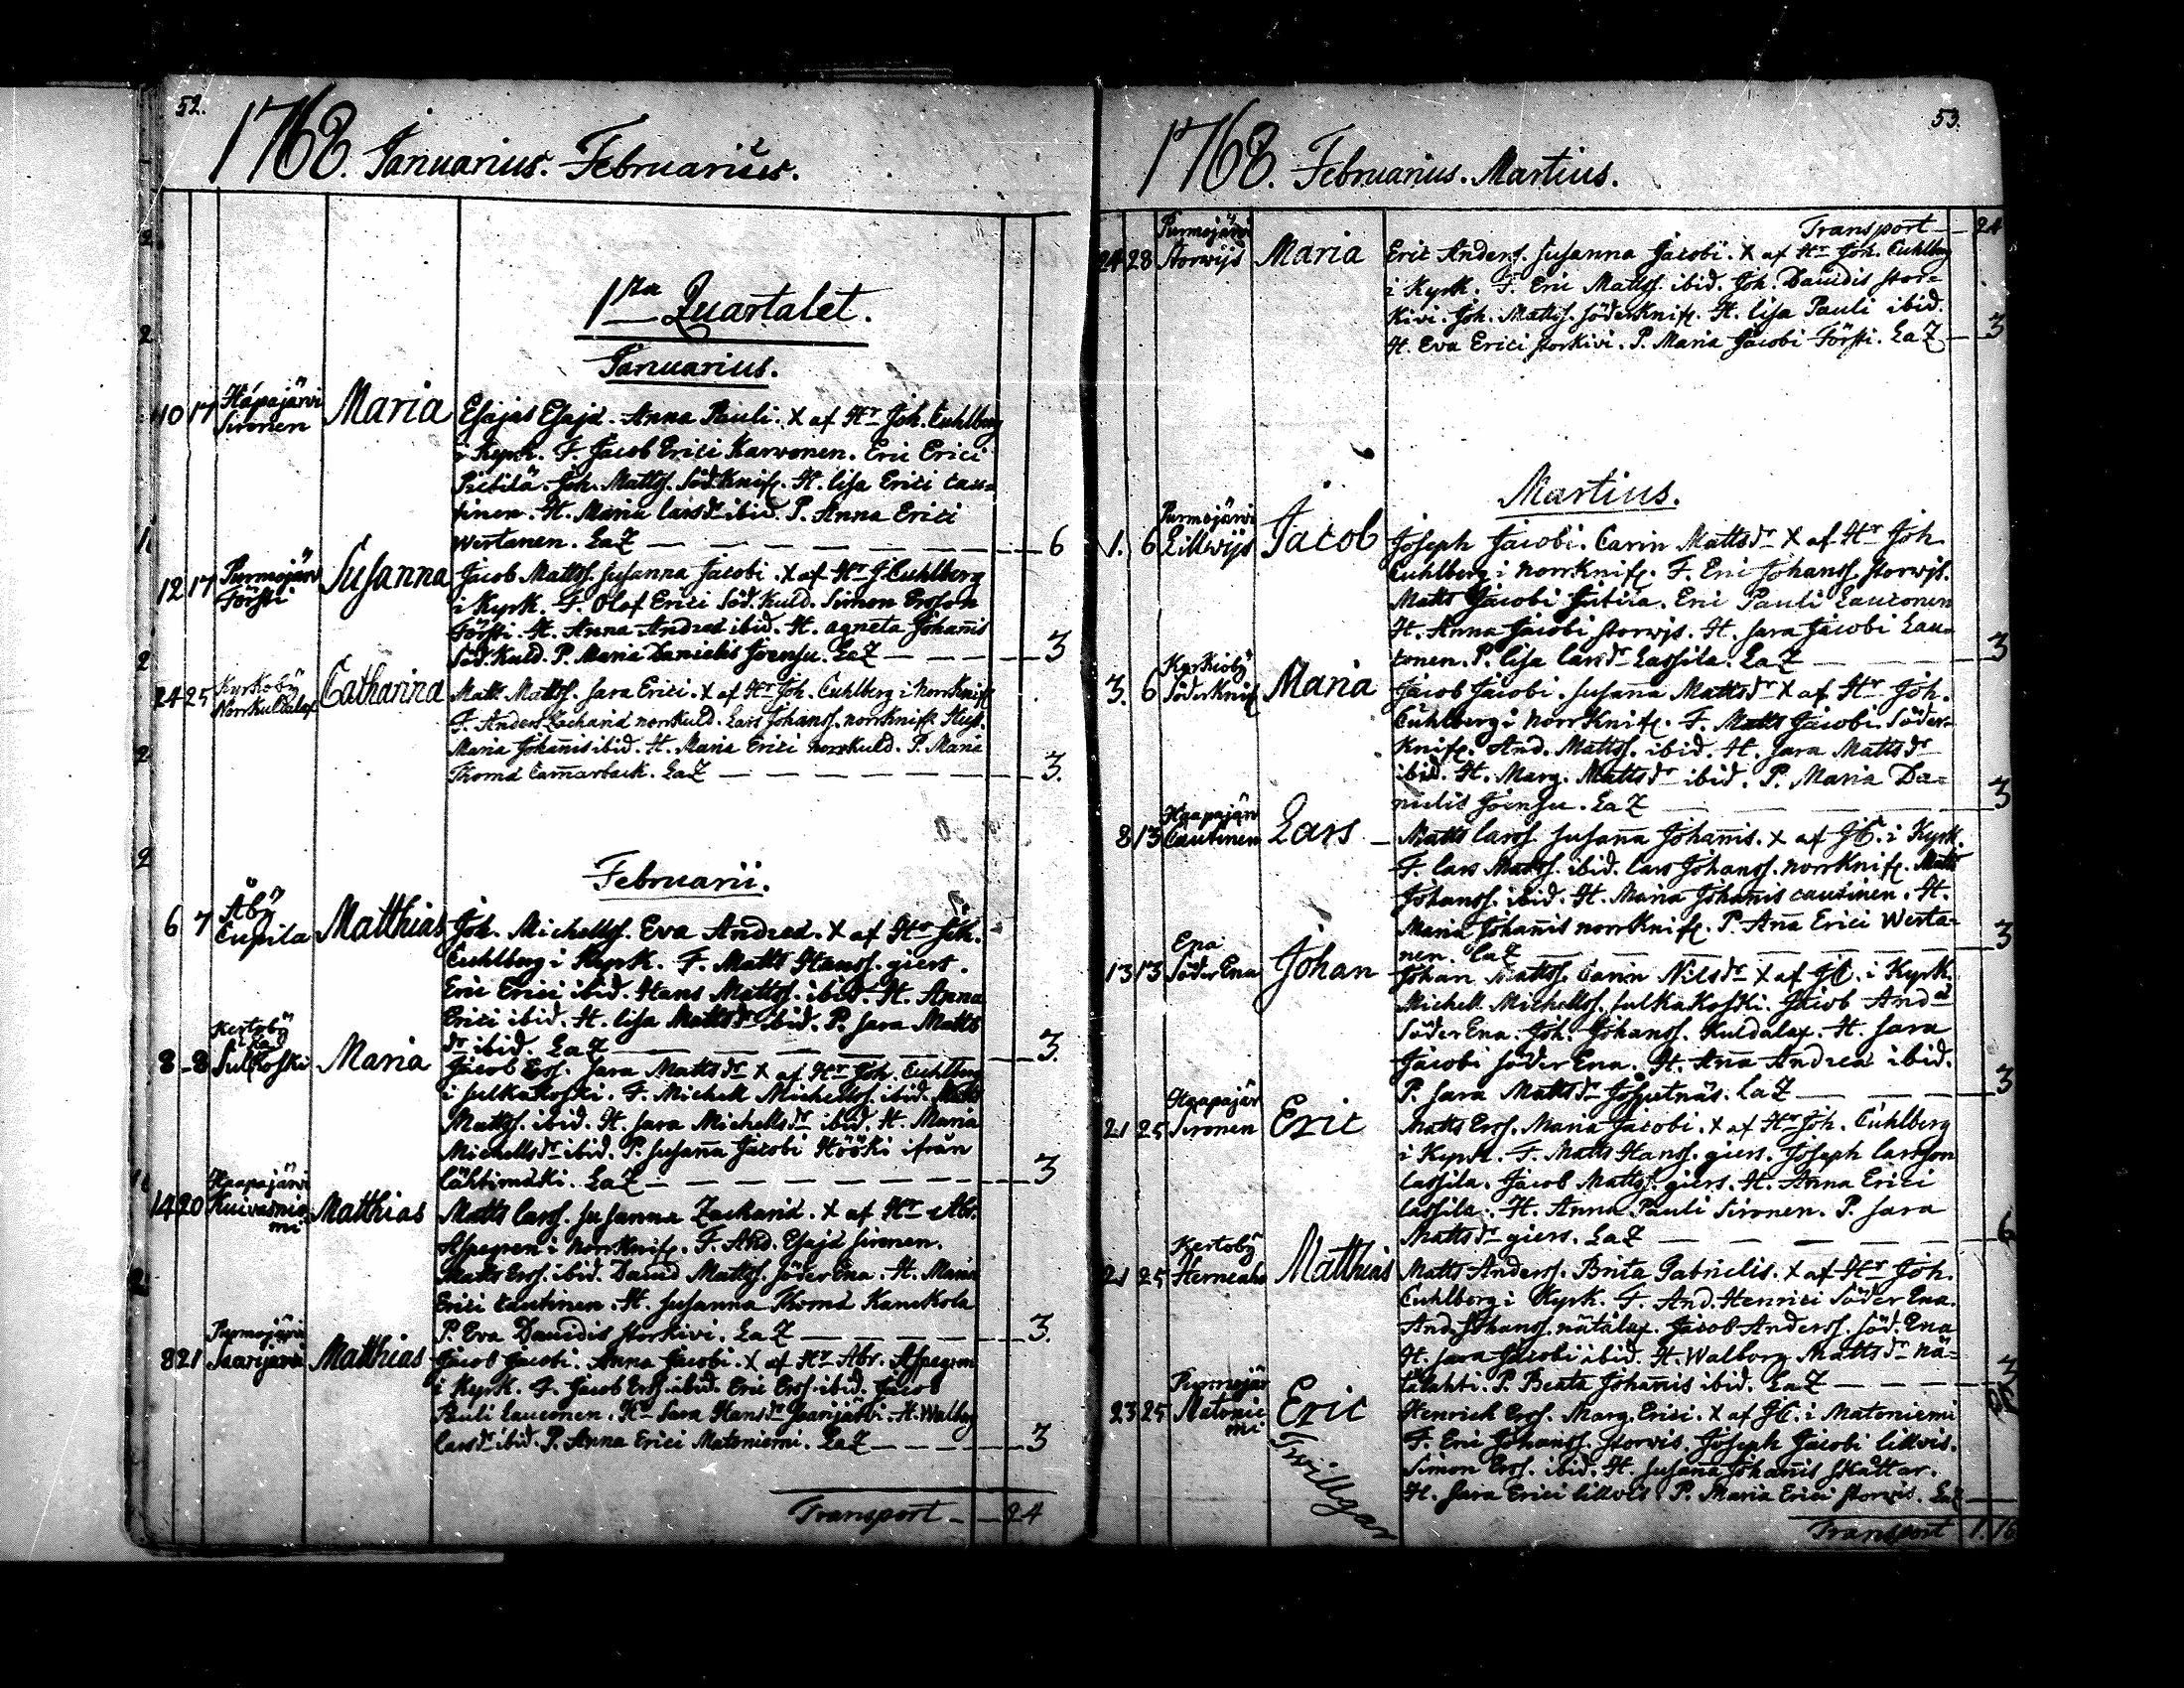 52.
1768. Januarius. Februarius.
1sta Quartalet.
Januarius.
10 17 Håpajärvi Sironen Maria Esajas Esajæ. Anna Pauli. X af Hr Joh. Cuhlberg
i Kyrk. F. Jacob Erici Karvonen. Eric Erici
Pietilä. Joh. Mattss. Söd.Knif. H. lisa Erici Cau-
tinen. H. Maria larsdr ibid. P. Anna Erici
Wertanen. LaZ — 6
12 17 Purmojärv Försti Susanna Jacob Mattss. Susanna Jacobi. X af Hr J. Cuhlberg
i Kyrk. F. Olof Erici Söd. Kuld. Simon Ersson
Försti. H. Anna Andreæ ibid. H. agneta Johanis
Söd. Kuld. P. Maria Danielis Joensu. LaZ — 3
24 25 Kyrkoby Norrkuldalax Catharina Matts Mattss. Sara Erici. X af Hr Joh. Cuhlberg i Norrknif
F. Anders Zachariæ norrkuld. Lars Johanss. norrknif. Hust.
Maria Johanis ibid. H. Maria Erici norrkuld. P. Maria
Thomæ Camarback. LaZ — 3.
Februarii.
6 7 Åby Cupila Matthias Joh. Michellss. Eva Andreæ. X af Hr Joh.
Cuhlberg i Kyrk. F. Matts Hanss. giers.
Eric Erici ibid. Hans Mattss. ibid. H. Anna
Erici ibid. H. lisa Mattsdr ibid. P. Sara Matts
dr ibid. LaZ — 3.
8 8 Kertoby Sulkakoski Maria Jacob Erss. Sara Mattsdr X af Hr Joh. Cuhlberg
i Sulkakoski. F. Michell Michellss. ibid. Matts
Mattss. ibid. H. Sara Michellsdr ibid. H. Maria
Michellsdr ibid. P. Susana Jacobi Hööki ifrån
Lähtimäki. LaZ — 3
14 20 Haapajärvi Kuivasnie mi Matthias Matts larss. Susanna Zachariæ. X af Hr Abr.
Aspegren i Norrknif. F. And. Esajæ Sironen.
Matts Erss. ibid. David Mattss. Söder Ena. H. Maria
Erici Cautinen. H. Susanna Thomæ Kanckola
P. Eva Davidis Storkivi. LaZ — 3.
8 21 Purmojärvi Saarijärvi Matthias Jacob Jacobi. Anna Jacobi. X af Hr Abr. Aspegren
i Kyrk. F. Jacob Erss. ibid. Eric Erss. ibid. Jacob
Pauli Lauconen. H. Sara Hansdr Saarijärvi. H. Walborg
larsdr ibid. P. Anna Erici Matoniemi. LaZ — 3
Transport — 24
53.
1768. Februarius. Martius.
Transport — 24
24 28 Purmojärvi Storwijs Maria Eric Anderss. Susanna Jacobi. X af Hr Joh. Cuhlberg
i Kyrk. F. Eric Mattss. ibid. Joh. Davidis Stor-
kivi. Joh. Mattss. Söderknif. H. lisa Pauli ibid.
H. Eva Erici Storkivi. P. Maria Jacobi Försti. LaZ — 3
Martius.
1. 6 Purmojärvi Lillwijs Jacob Joseph Jacobi. Carin Mattsdr X af Hr Joh
Cuhlberg i Norrknif. F. Eric Johanss. Storwjs.
Matts Jacobi Jutila. Eric Pauli Lauconen
H. Anna Jacobi Storwjs. H. Sara Jacobi Lau-
conen. P. lisa larsdr Lassila. LaZ — 3
3. 6 Kyrkioby Söderknif Maria Jacob Jacobi. Susana Mattsdr X af Hr Joh.
Cuhlberg i Norrknif. F. Matts Jacobi Söder-
knif. And. Mattss. ibid. H. Sara Mattsdr
ibid. H. Marg. Mattsdr ibid. P. Maria Da-
nielis Joensu. LaZ — 3
8 13 Haapajärv Cautinen Lars Matts larss. Susana Johanis. X af JC. i Kyrk.
F. lars Mattss. ibid. lars Johanss. norrknif. Matts
Johanss. ibid. H. Maria Johanis cautinen. H.
Maria Johanis norrknif. P. Ana Erici Werta-
nen. LaZ — 3
13 13 Ena Söder Ena Johan Johan Mattss. Carin Nilsdr X af JC. i Kyrk.
Michell Michellss. Sulkakoski. Jacob Andæ
Söder Ena. Joh. Johanss. Kuldalax. H. Sara
Jacobi Söder Ena. H. Ana Andreæ ibid.
P. Sara Mattsdr LaZ — 3
21 25 Haapajär Sironen Eric Matts Erss. Maria Jacobi. X af Hr Joh. Cuhlberg
i Kyrk. F. Matts Hanss. giers. Joseph larsson
Lassila. Jacob Mattss. giers. H. Anna Erici
Lassila. H. Anna Pauli Sironen. P. Sara
Mattsdr giers. LaZ — 6
21 25 Kertoby Herneaho Matthias Matts Anderss. Brita Gabrielis. X af Hr Joh.
Cuhlberg i Kyrk. F. And. Henrici Söder Ena.
And. Johanss. nätälax. Jacob Anderss. Söd. Ena
H. Sara Jacobi ibid. H. Walborg Mattsdr nä-
tälahti. P. Beata Johanis ibid. LaZ — 3
23 25 Purmojär Matonie mi Eric Henrich Erss. Marg. Erici. X af JC. i Matoniemi
Twillgar F. Eric Johanss. Storvis. Joseph Jacobi lillvis.
Simon Erss. ibid. H. Susana Johanis Skåttar.
H. Sara Erici lillvis. P. Maria Erici Storwis. LaZ
Transport 1. 16